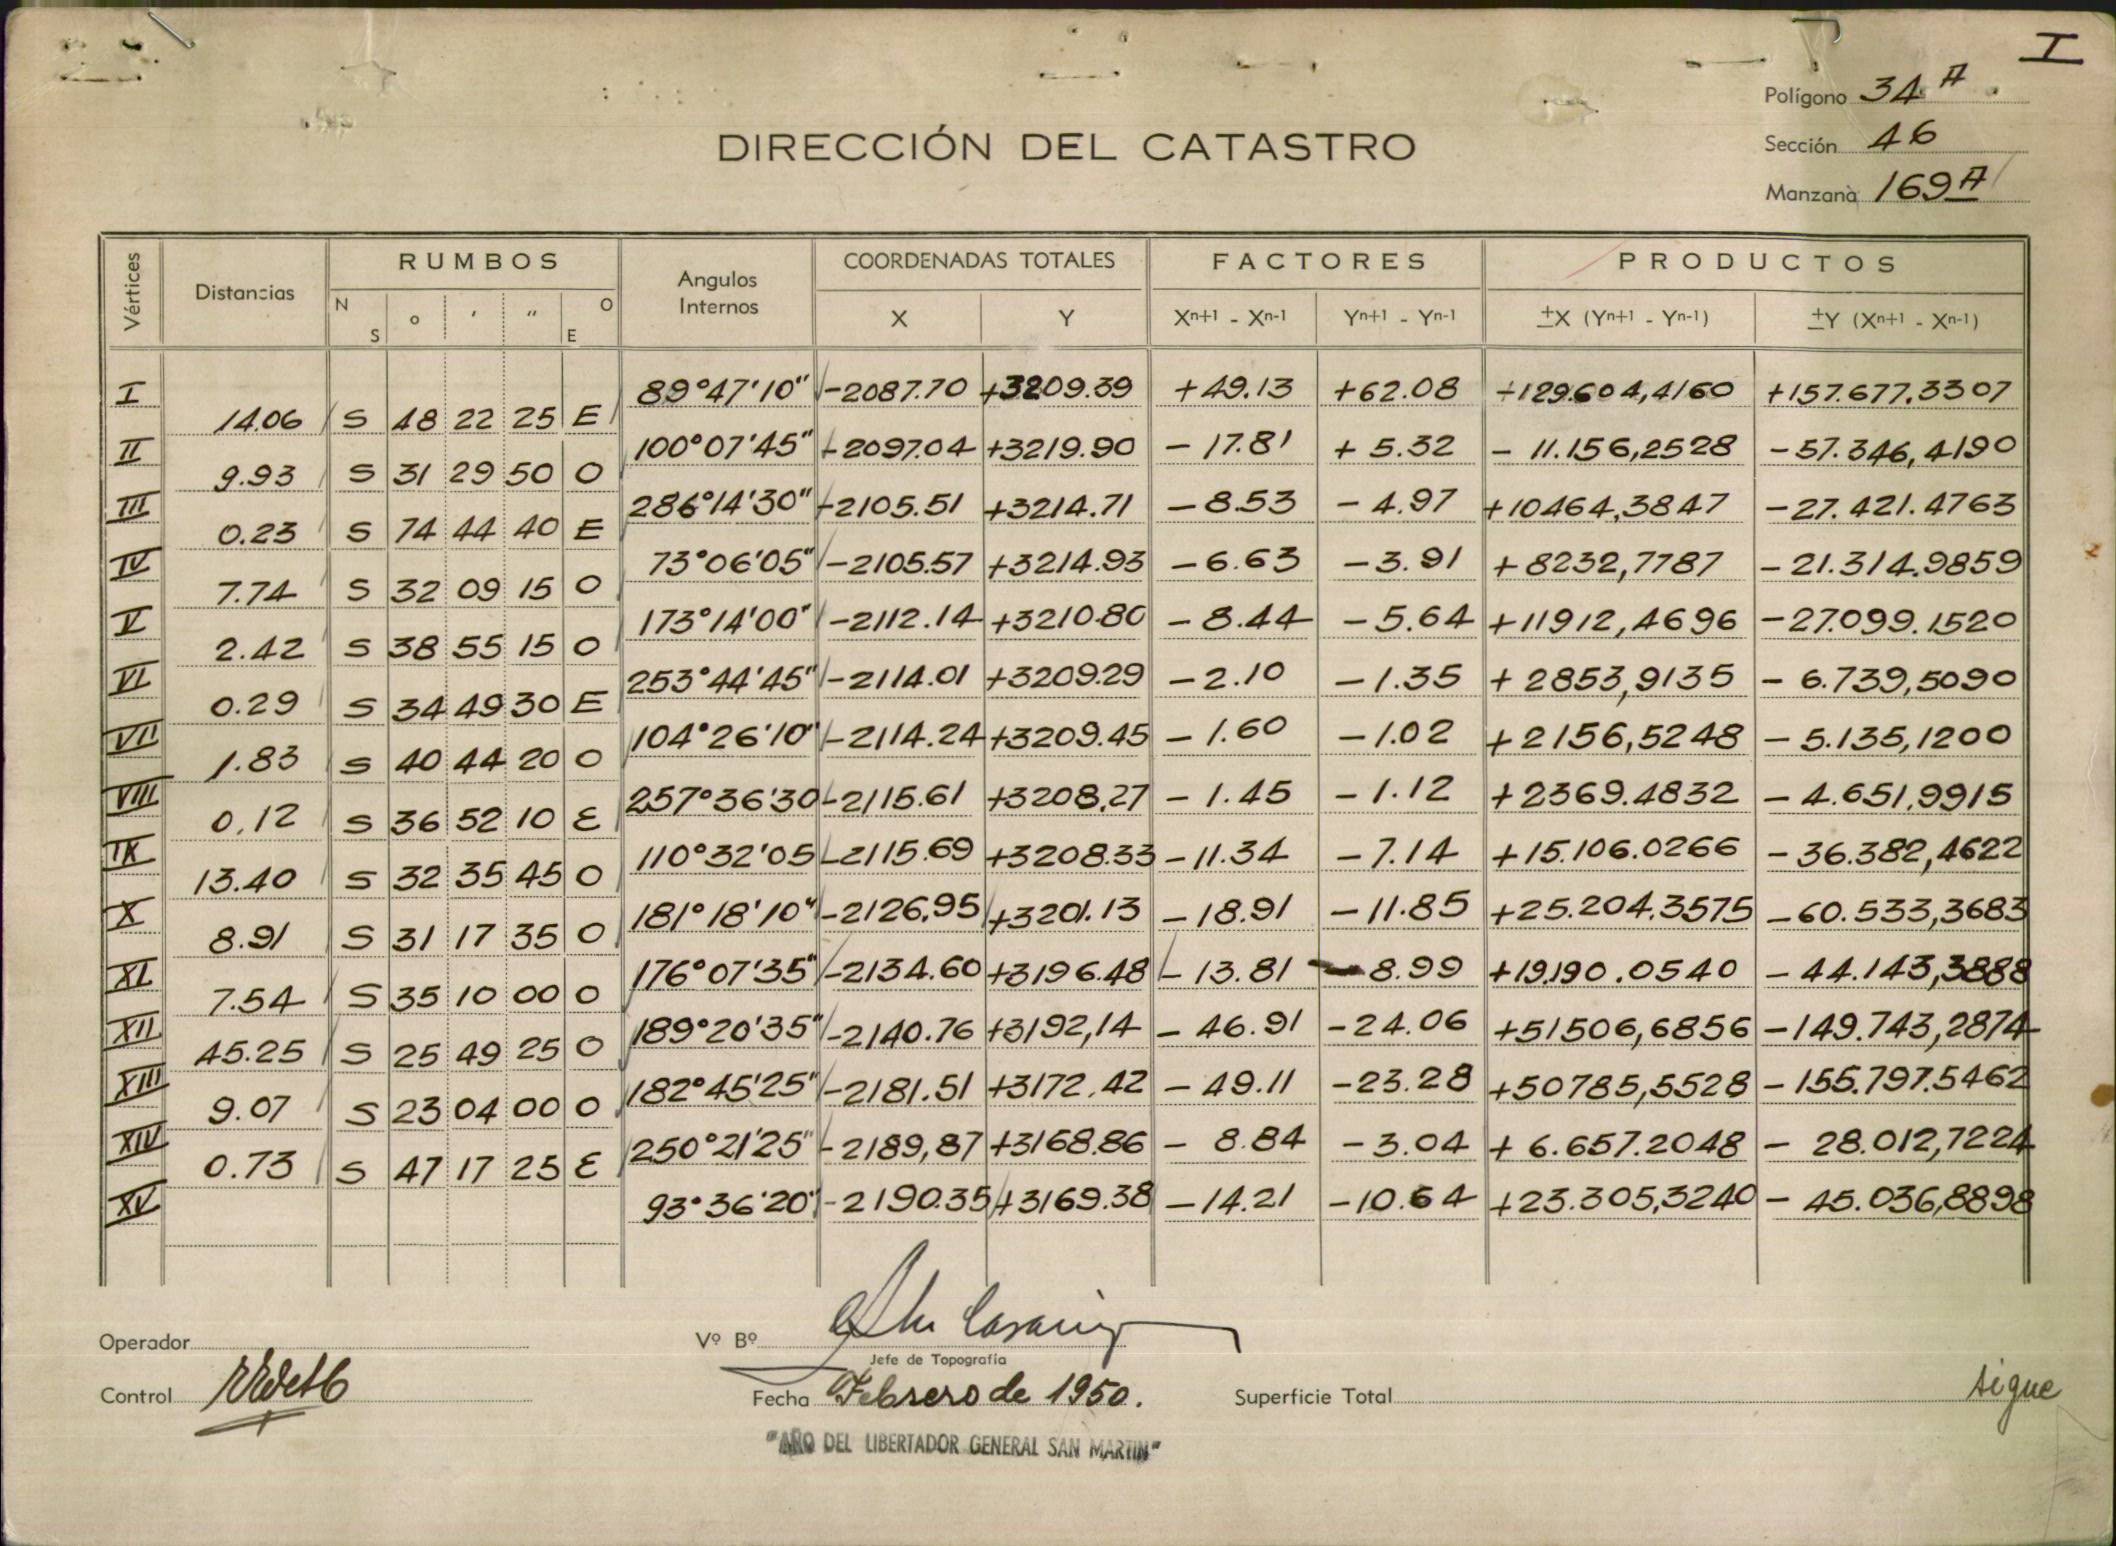 I
Polígono 34 A
Sección 46
Manzana 169 A
DIRECCIÓN DEL CATASTRO
Vértices Distancias RUMBOS Angulos Internos COORDENADAS TOTALES FACTORES PRODUCTOS
N S ° ' " O E X Y Xn+1 - Xn-1 Yn+1 - Yn-1 ±X (Yn+1 - Yn-1) ±Y (Xn+1 - Xn-1)
I 89°47'10" -2087.70 +3209.39 +49.13 +62.08 -129.604,4160 +157.677.3307
14.06 S 48 22 25 E
II 100°07'45" -2097.04 +3219.90 -17.81 +5.32 -11.156,2528 -57.346,4190
9.93 S 31 29 50 O
III 286°14'30" -2105.51 +3214.71 -8.53 -4.97 +10464,3847 -27.421.4763
0.23 S 74 44 40 E
IV 73°06'05" -2105.57 +3214.93 -6.63 -3.91 +8232,7787 -21.314.9859
7.74 S 32 09 15 O
V 173°14'00" -2112.14 +3210.80 -8.44 -5.64 +11912,4696 -27.099.1520
2.42 S 38 55 15 O
VI 253°44'45" -2114.01 +3209.29 -2.10 -1.35 +2853,9135 -6.739,5090
0.29 S 34 49 30 E
VII 104°26'10" -2114.24 +3209.45 -1.60 -1.02 +2156,5248 -5.135,1200
1.83 S 40 44 20 O
VIII 257°36'30 -2115.61 +3208,27 -1.45 -1.12 +2369.4832 -4.651,9915
0,12 S 36 52 10 E
IX 110°32'05 -2115.69 +3208.33 -11.34 -7.14 +15.106.0266 -36.382,4622
13.40 S 32 35 45 O
X 181°18'10" -2126,95 +3201.13 -18.91 -11.85 +25.204.3575 -60.533,3683
8.91 S 31 17 35 O
XI 176°07'35" -2134.60 +3196.48 -13.81 -8.99 +19.190.0540 -44.143,3888
7.54 S 35 10 00 O
XII 189°20'35" -2140.76 +3192,14 -46.91 -24.06 +51506,6856 -149.743,2874
45.25 S 25 49 25 O
XIII 182°45'25" -2181.51 +3172.42 -49.11 -23.28 +50785,5528 -155.797.5462
9.07 S 23 04 00 O
XIV 250°21'25" -2189,87 +3168.86 -8.84 -3.04 +6.657.2048 -28.012,7224
0.73 S 47 17 25 E
XV 93°36'20" -2190.35 +3169.38 -14.21 -10.64 +23.305,3240 -45.036,8898
Operador Vº Bº
Jefe de Topografía
Control Fecha Febrero de 1950. Superficie Total sigue
"AÑO DEL LIBERTADOR GENERAL SAN MARTIN"